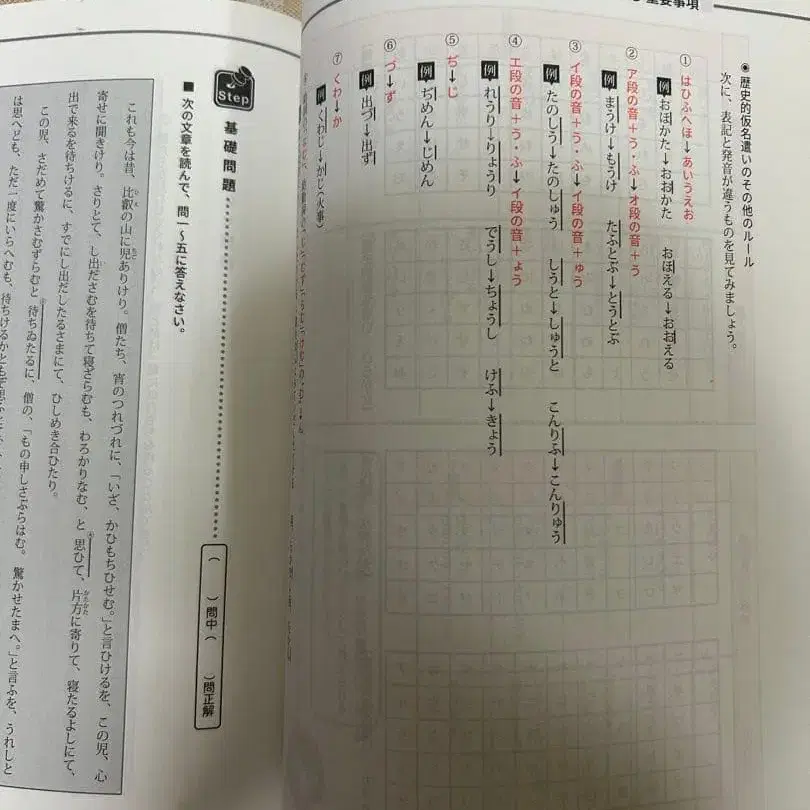 重要事項
◉歴史的仮名遣いのその他のルール
次に、表記と発音が違うものを見てみましょう。
① はひふへほ→あいうえお
例 おほかた→おおかた おぼえる→おおえる
② ア段の音+う・ふ→オ段の音+う
例 まうけ→もうけ たふとぶ→とうとぶ
③ イ段の音+う・ふ→イ段の音+ゅう
例 たのしう→たのしゅう しうと→しゅうと こんりふ→こんりゅう
④ エ段の音+う・ふ→イ段の音+ょう
例 れうり→りょうり でうし→ちょうし けふ→きょう
⑤ ぢ→じ
例 ぢめん→じめん
⑥ づ→ず
例 出づ→出ず
⑦ くわ→か
例 くわじ→かじ(火事)
Step
基礎問題
( )問中( )問正解
■ 次の文章を読んで、問一〜五に答えなさい。
これも今は昔、比叡の山に児ありけり。僧たち、宵のつれづれに、「いざ、かひもちひせむ。」と言ひけるを、この児、心
寄せに聞きけり。さりとて、し出ださむを待ちて寝ざらむも、わろかりなむ、と思ひて、片方に寄りて、寝たるよしにて、
出で来るを待ちけるに、すでにし出だしたるさまにて、ひしめき合ひたり。
この児、さだめて驚かさむずらむと待ちゐたるに、僧の、「もの申しさぶらはむ。驚かせたまへ。」と言ふを、うれしと
は思へども、ただ一度にいらへむも、待ちけるかともぞ思ふ